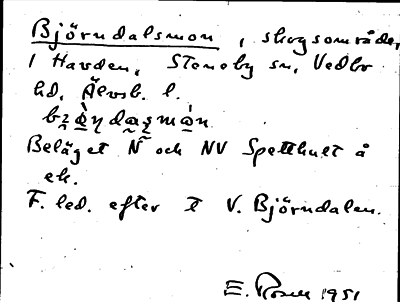 Björndalsmon, skogsområde,
i Havden, Steneby sn, Vedbo
hd, Älvsb. l.
Beläget N och NV Spetthult å
ek.
F. led. efter t V. Björndalen.
E. Rosell 1951